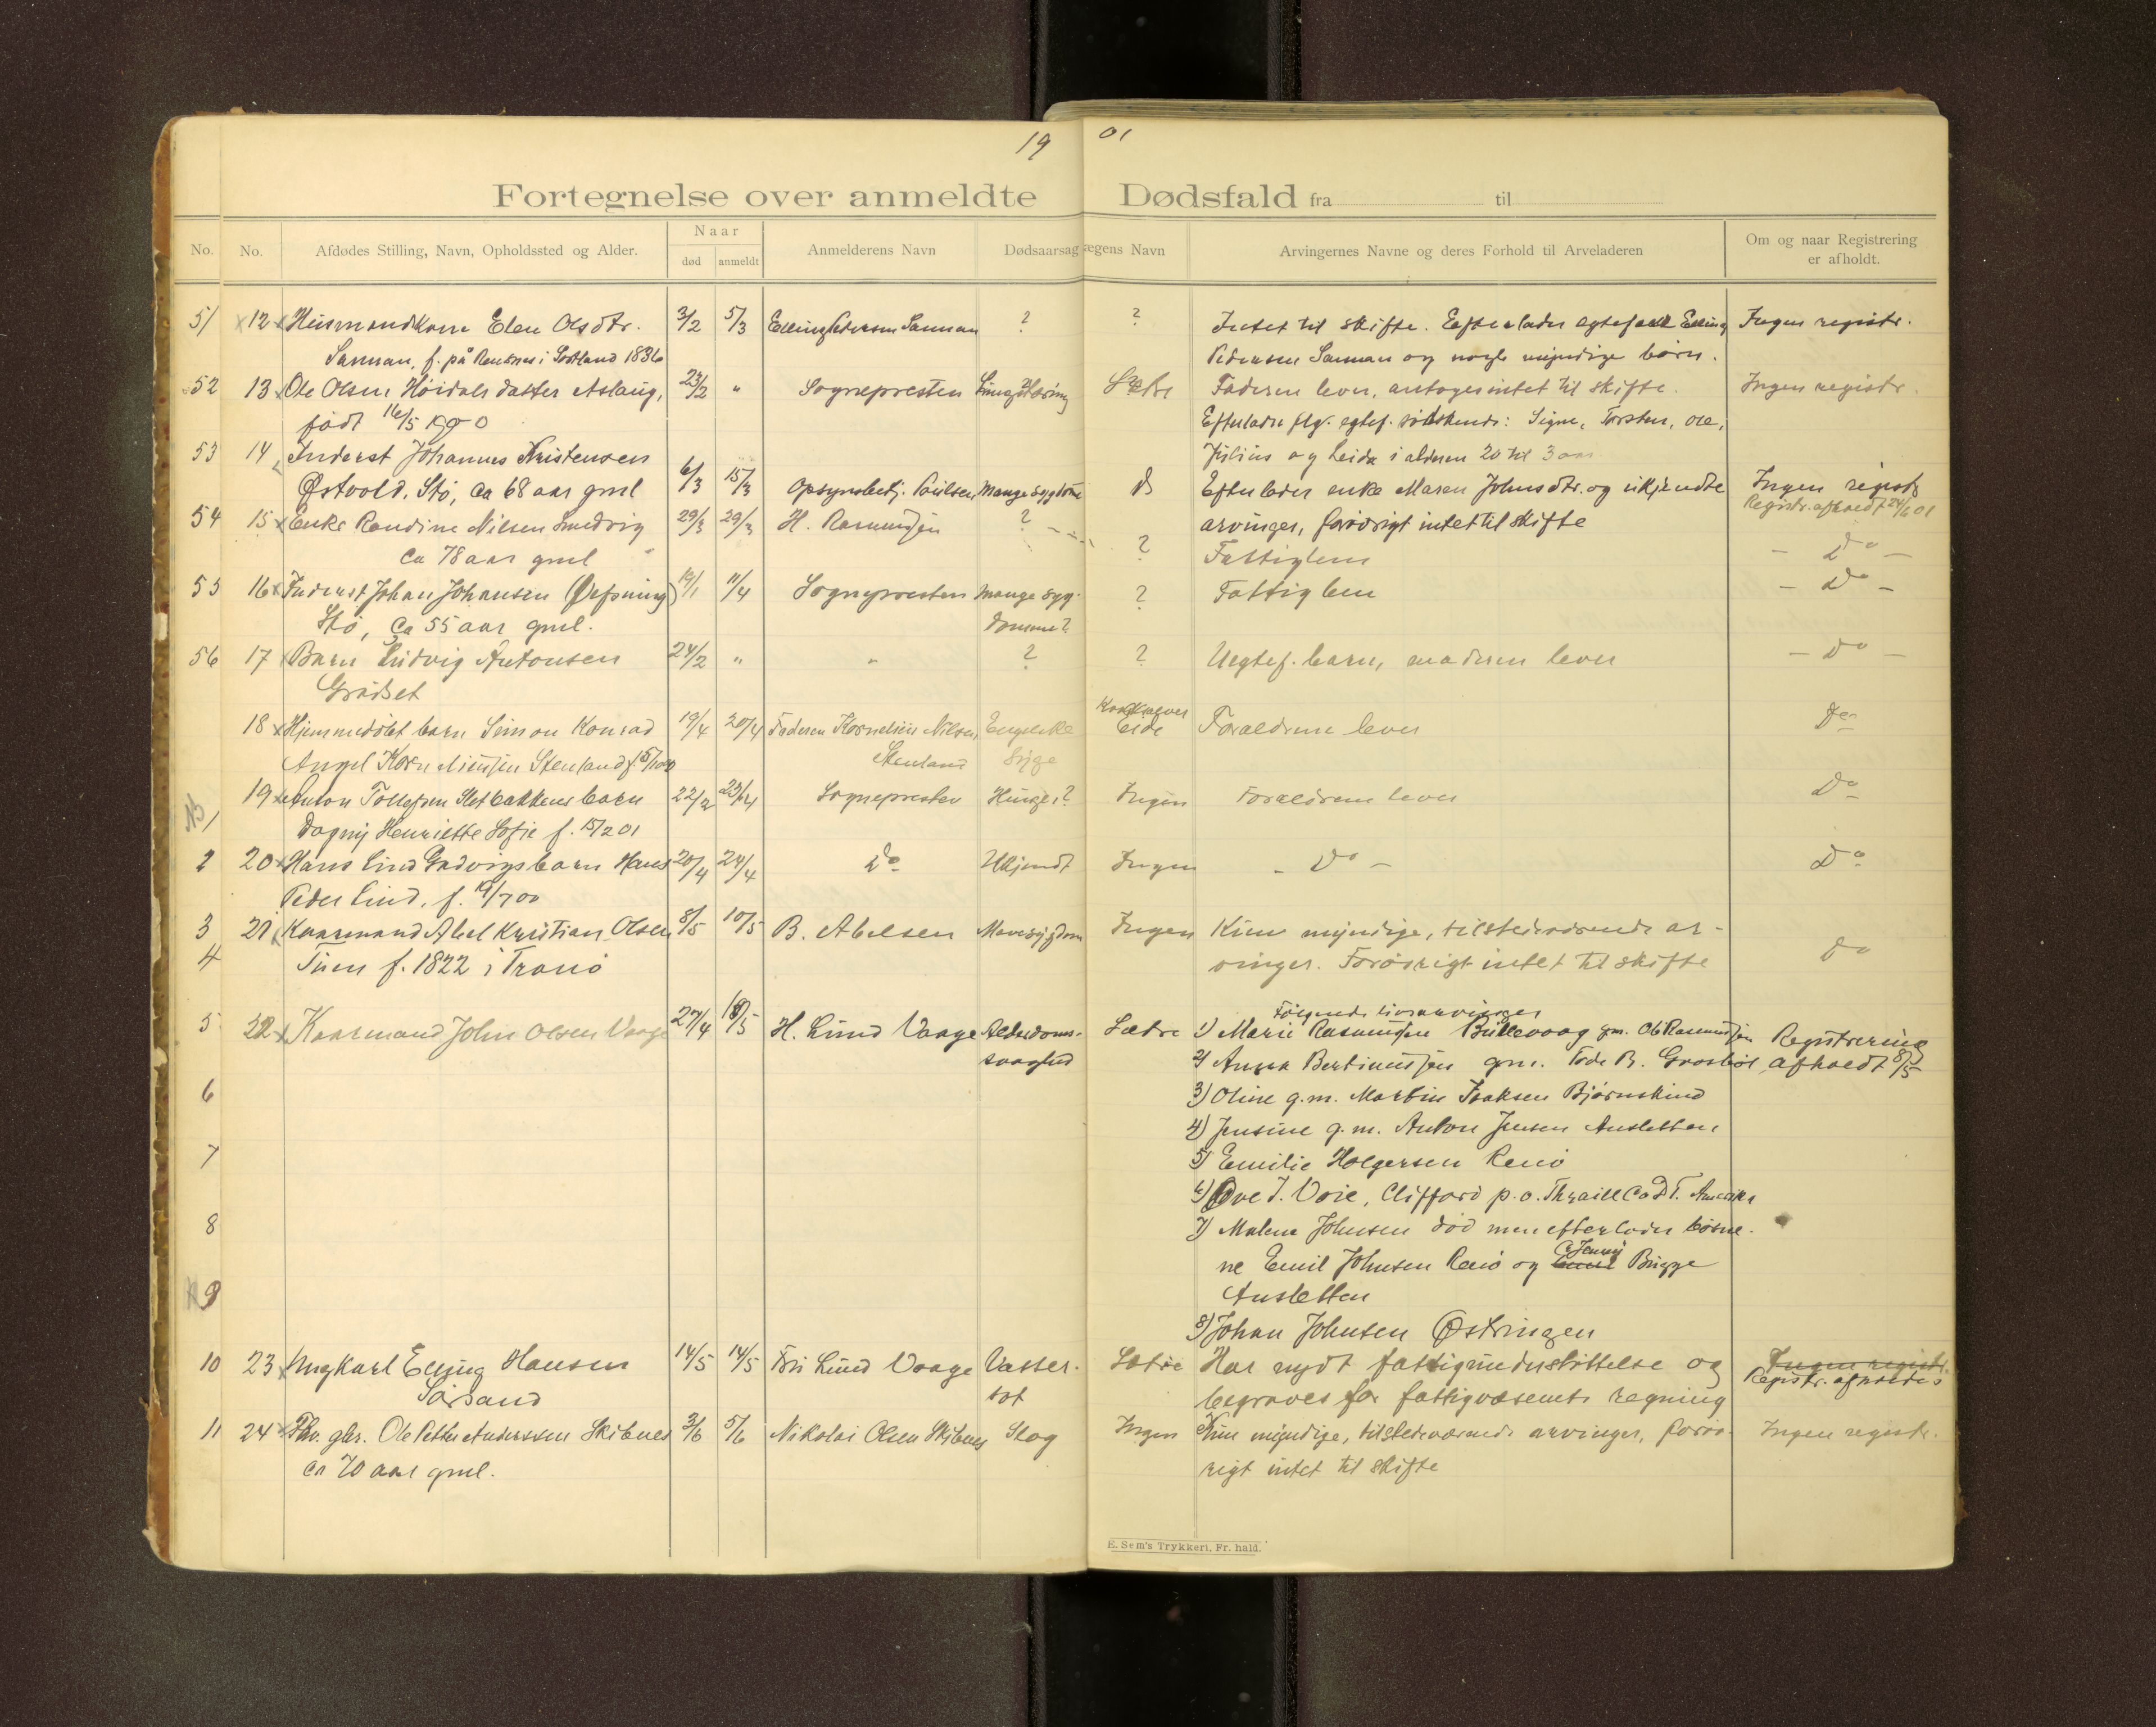 19 01
Fortegnelse over anmeldte Dødsfald fra til
No. No. Afdødes Stilling, Navn, Opholdssted og Alder. Naar Anmelderens Navn Dødsaarsag Lægens Navn Arvingernes Navne og deres Forhold til Arveladeren Om og naar Registrering
død anmeldt er afholdt.
51 12 Husmandkone Elen Olsdtr. 3/2 5/3 Elling Pedersen Sannan ? ? Intet til skifte. Efterlader egtefælle Elling Ingen registr.
Sannan, f. på Sortland 1836 Pedersen Sannan og nogle myndige børn.
52 13 Ole Olsen Høidals datter Aslaug, 23/2 " Sognepresten Sætre Faderen lever, antages intet til skifte. Ingen registr.
født 16/5 1900 Efterlader flg. egtef. Signe, Torsten, Ole,
53 14 Inderst Johannes Kristensen Julius og i alderen 20 til 3 aar
Østvold, Stø, ca 68 aar gml 6/3 15/3 Opsynsbetj. Paulsen, Mange sygdome Efterlader enke Maren Johnsdtr. og ukjendte Ingen registr
54 15 Enke Randine Nilsen Smedvig 29/3 29/3 H. Rasmussen ? arvinger, forøvrigt intet til skifte Registr. afholdt 24/6 01
ca 78 aar gml ? Fattiglem - Do -
55 16 Inderst Johan Johansen 19/1 11/4 Sognepresten Mange syg- ? Fattiglem - Do -
Stø, ca 55 aar gml. domme?
56 17 Barn Ludvig Antonsen 24/2 " " ? ? Uegtef. barn, moderen lever - Do -
Grådset
18 Hjemmedøbt barn Simon Konrad 19/4 20/4 Faderen Kornelius Nilsen, Engelske Eide Forældrene lever Do
Angel Stenland f. Stenland Syge
1 19 Anton Tollefsen Sletbakkens barn 22/2 23/4 Sognepresten ? Ingen Forældrene lever Do
Dagny Henriette Sofie f. 15/2 01
2 20 Hans Lind Gudvigs barn Hans 20/4 24/4 Do Ukjendt Ingen - Do - Do
Peder Lind. f. 19/7 00
3 21 Kaarmand Abel Kristian Olsen 8/5 10/5 B. Abelsen Mavesygdom Ingen Kun myndige, tilstedeværende ar-
4 Tuen f. 1822 i Tranø vinger. Forøvrigt intet til skifte Do
Følgende livsarvinger
5 22 Kaarmand John Olsen Vaage 27/4 18/5 H. Lund Vaage Alderdoms- Sætre 1) Marie Rasmussen gm. Ole Rasmussen Registrering
svaghed 2) Anna Bertinussen gm. B. afholdt 8/5
6 3) Oline g.m. Martin Isaksen Bjørnskind
4) Jensine g.m. Anton Jensen Ansletten
7 5) Emilie Holgersen Renø
6) Ove J. Voie, Clifford p.o. Thraill Co D.T. Amerika
8 7) Malene Johnsen død men efterlader børne-
ne Emil Johnsen Renø og Jenny Brigge
9 Ansletten
8) Johan Johnsen Østringen
10 23 Ungkarl Elling Hansen 14/5 14/5 Fru Lund Vaage Vatter- Sætre Har nydt fattigunderstøttelse og Ingen registr.
Sørsand sot begraves for fattigvæsenets regning Registr. afholdes
11 24 Fhv. gbr. Ole Petter Anderssen Skibnes 3/6 5/6 Nikolai Olsen Skibnes Slag Ingen Kun myndige, tilstedeværende arvinger, forøv- Ingen registr.
ca 70 aar gml. rigt intet til skifte
E. Sem's Trykkeri, Fr. hald.